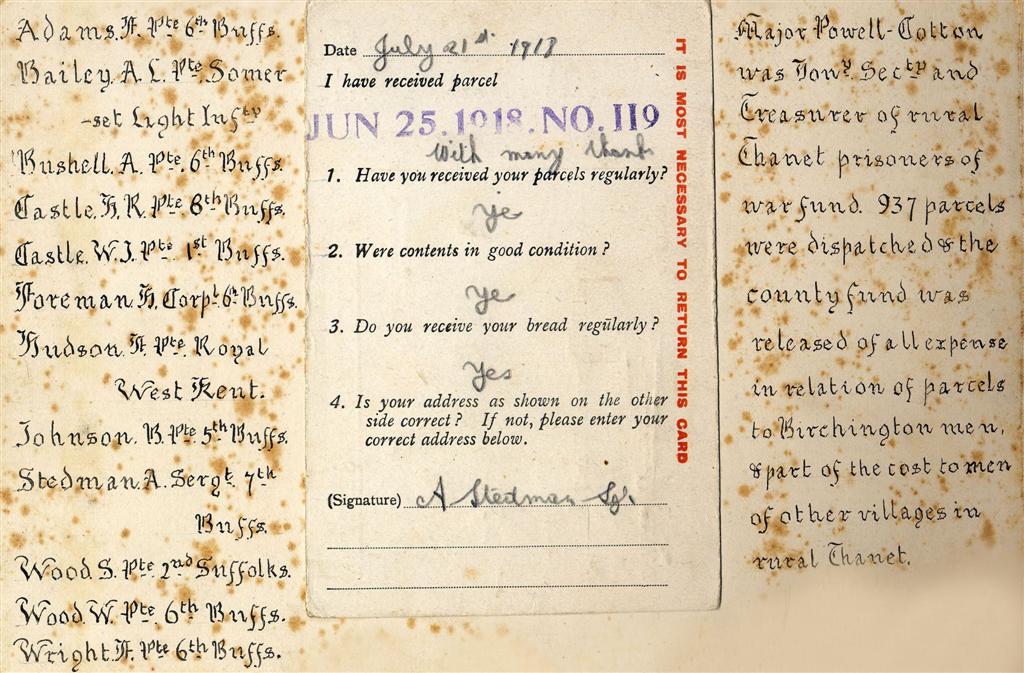 Adams. F. Pte 6th Buffs.
Bailey. A. L. Pte. Somer
-set Light Infty
Bushell. A. Pte. 6th Buffs.
Castle. H. R. Pte 8th Buffs.
Castle. W. J. Pte 1st Buffs.
Foreman. H. Corpl. 6th Buffs.
Hudson. F. Pte. Royal
West Kent.
Johnson. B. Pte 5th Buffs.
Stedman. A. Sergt. 7th
Buffs.
Wood. S. Pte 2nd Suffolks.
Wood. W. Pte. 6th Buffs.
Wright. F. Pte 6th Buffs.
Date July 21st. 1918
I have received parcel
JUN 25.1918.NO.119
With many thanks
1. Have you received your parcels regularly?
Ye
2. Were contents in good condition?
Ye
3. Do you receive your bread regularly?
Yes
4. Is your address as shown on the other
side correct? If not, please enter your
correct address below.
(Signature) A Stedman Sgt.
IT IS MOST NECESSARY TO RETURN THIS CARD
Major Powell-Cotton
was Hony. Secty and
Treasurer of rural
Thanet prisoners of
war fund. 937 parcels
were dispatched & the
county fund was
released of all expense
in relation of parcels
to Birchington men,
& part of the cost to men
of other villages in
rural Thanet.